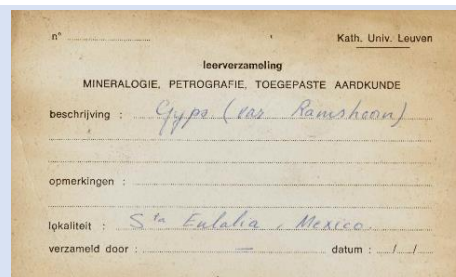 n° Kath. Univ. Leuven
leerverzameling
MINERALOGIE, PETROGRAFIE, TOEGEPASTE AARDKUNDE
beschrijving : Gyps (var Ramshoorn)
opmerkingen :
lokaliteit : Sta Eulalia, Mexico.
verzameld door : — datum : / /